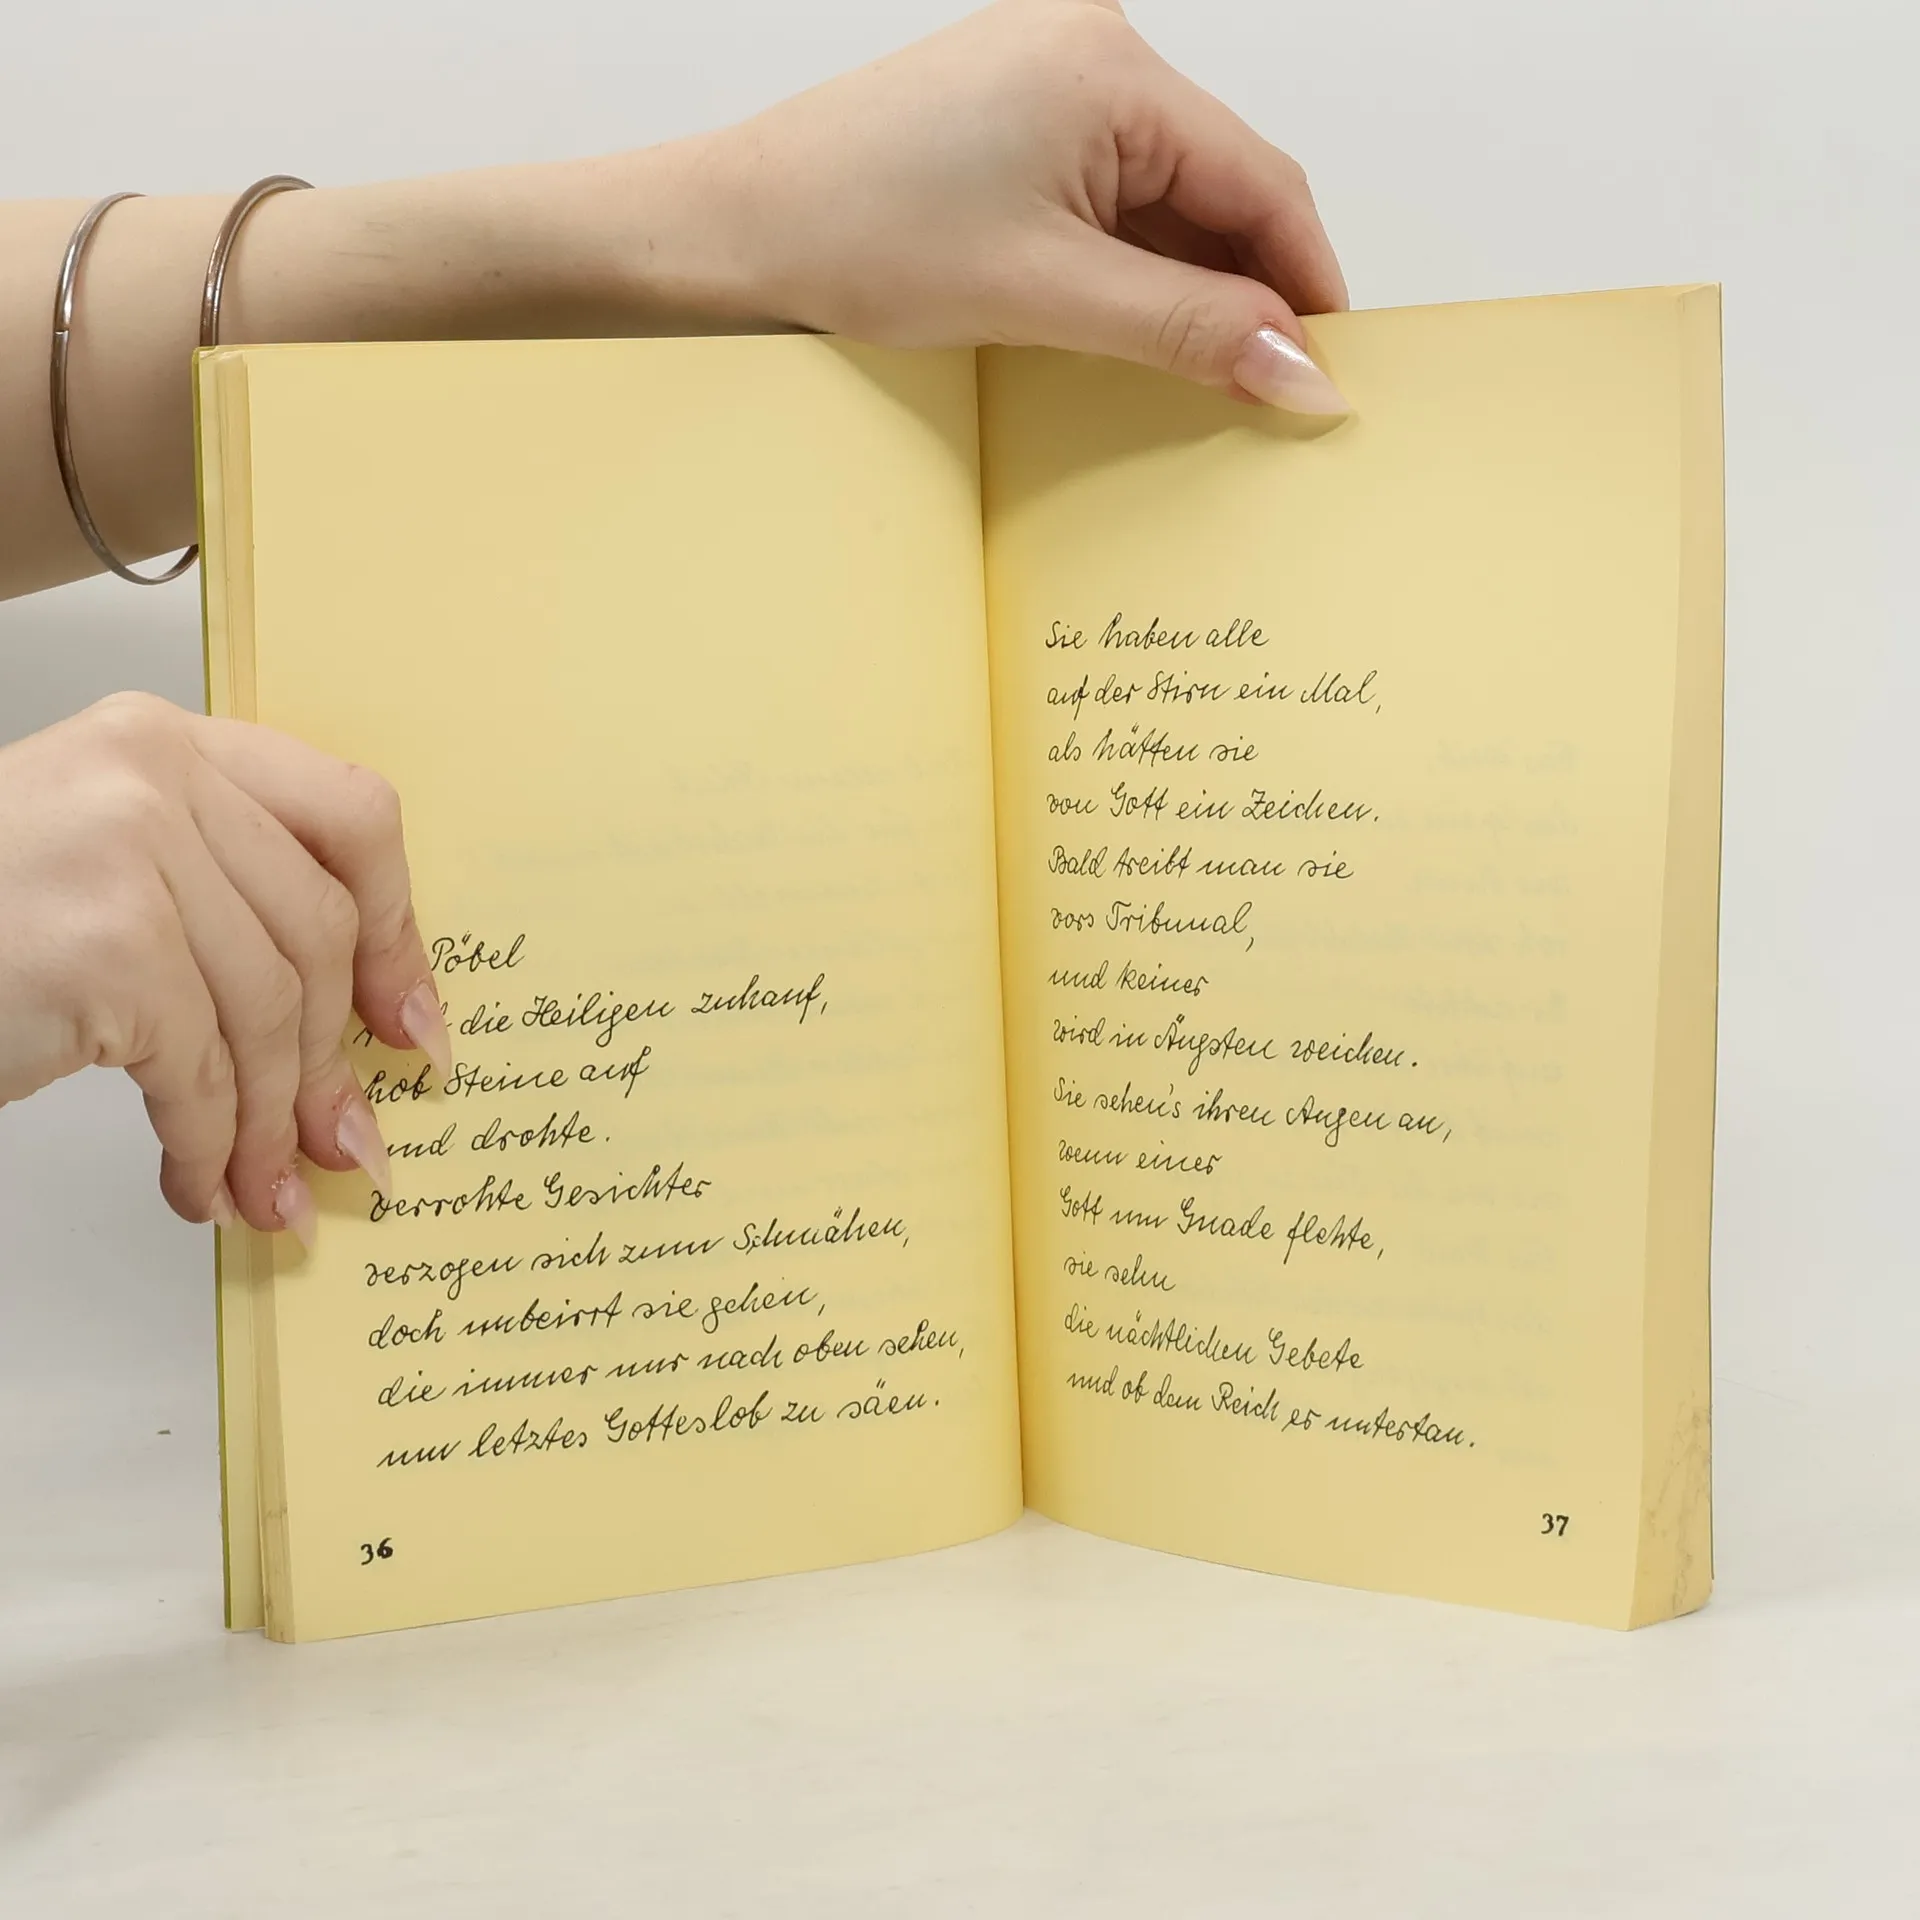 Pöbel
die Heiligen zuhauf,
hob Steine auf
und drohte.
Verrohte Gesichter
verzogen sich zum Schmähen,
doch unbeirrt sie gehen,
die immer nur nach oben sehen,
um letztes Gotteslob zu säen.
36
Sie haben alle
auf der Stirn ein Mal,
als hätten sie
von Gott ein Zeichen.
Bald treibt man sie
vors Tribunal,
und keiner
wird in Ängsten weichen.
Sie sehen's ihren Augen an,
wenn einer
Gott um Gnade flehte,
sie sehn
die nächtlichen Gebete
und ob dem Reich er untertan.
37